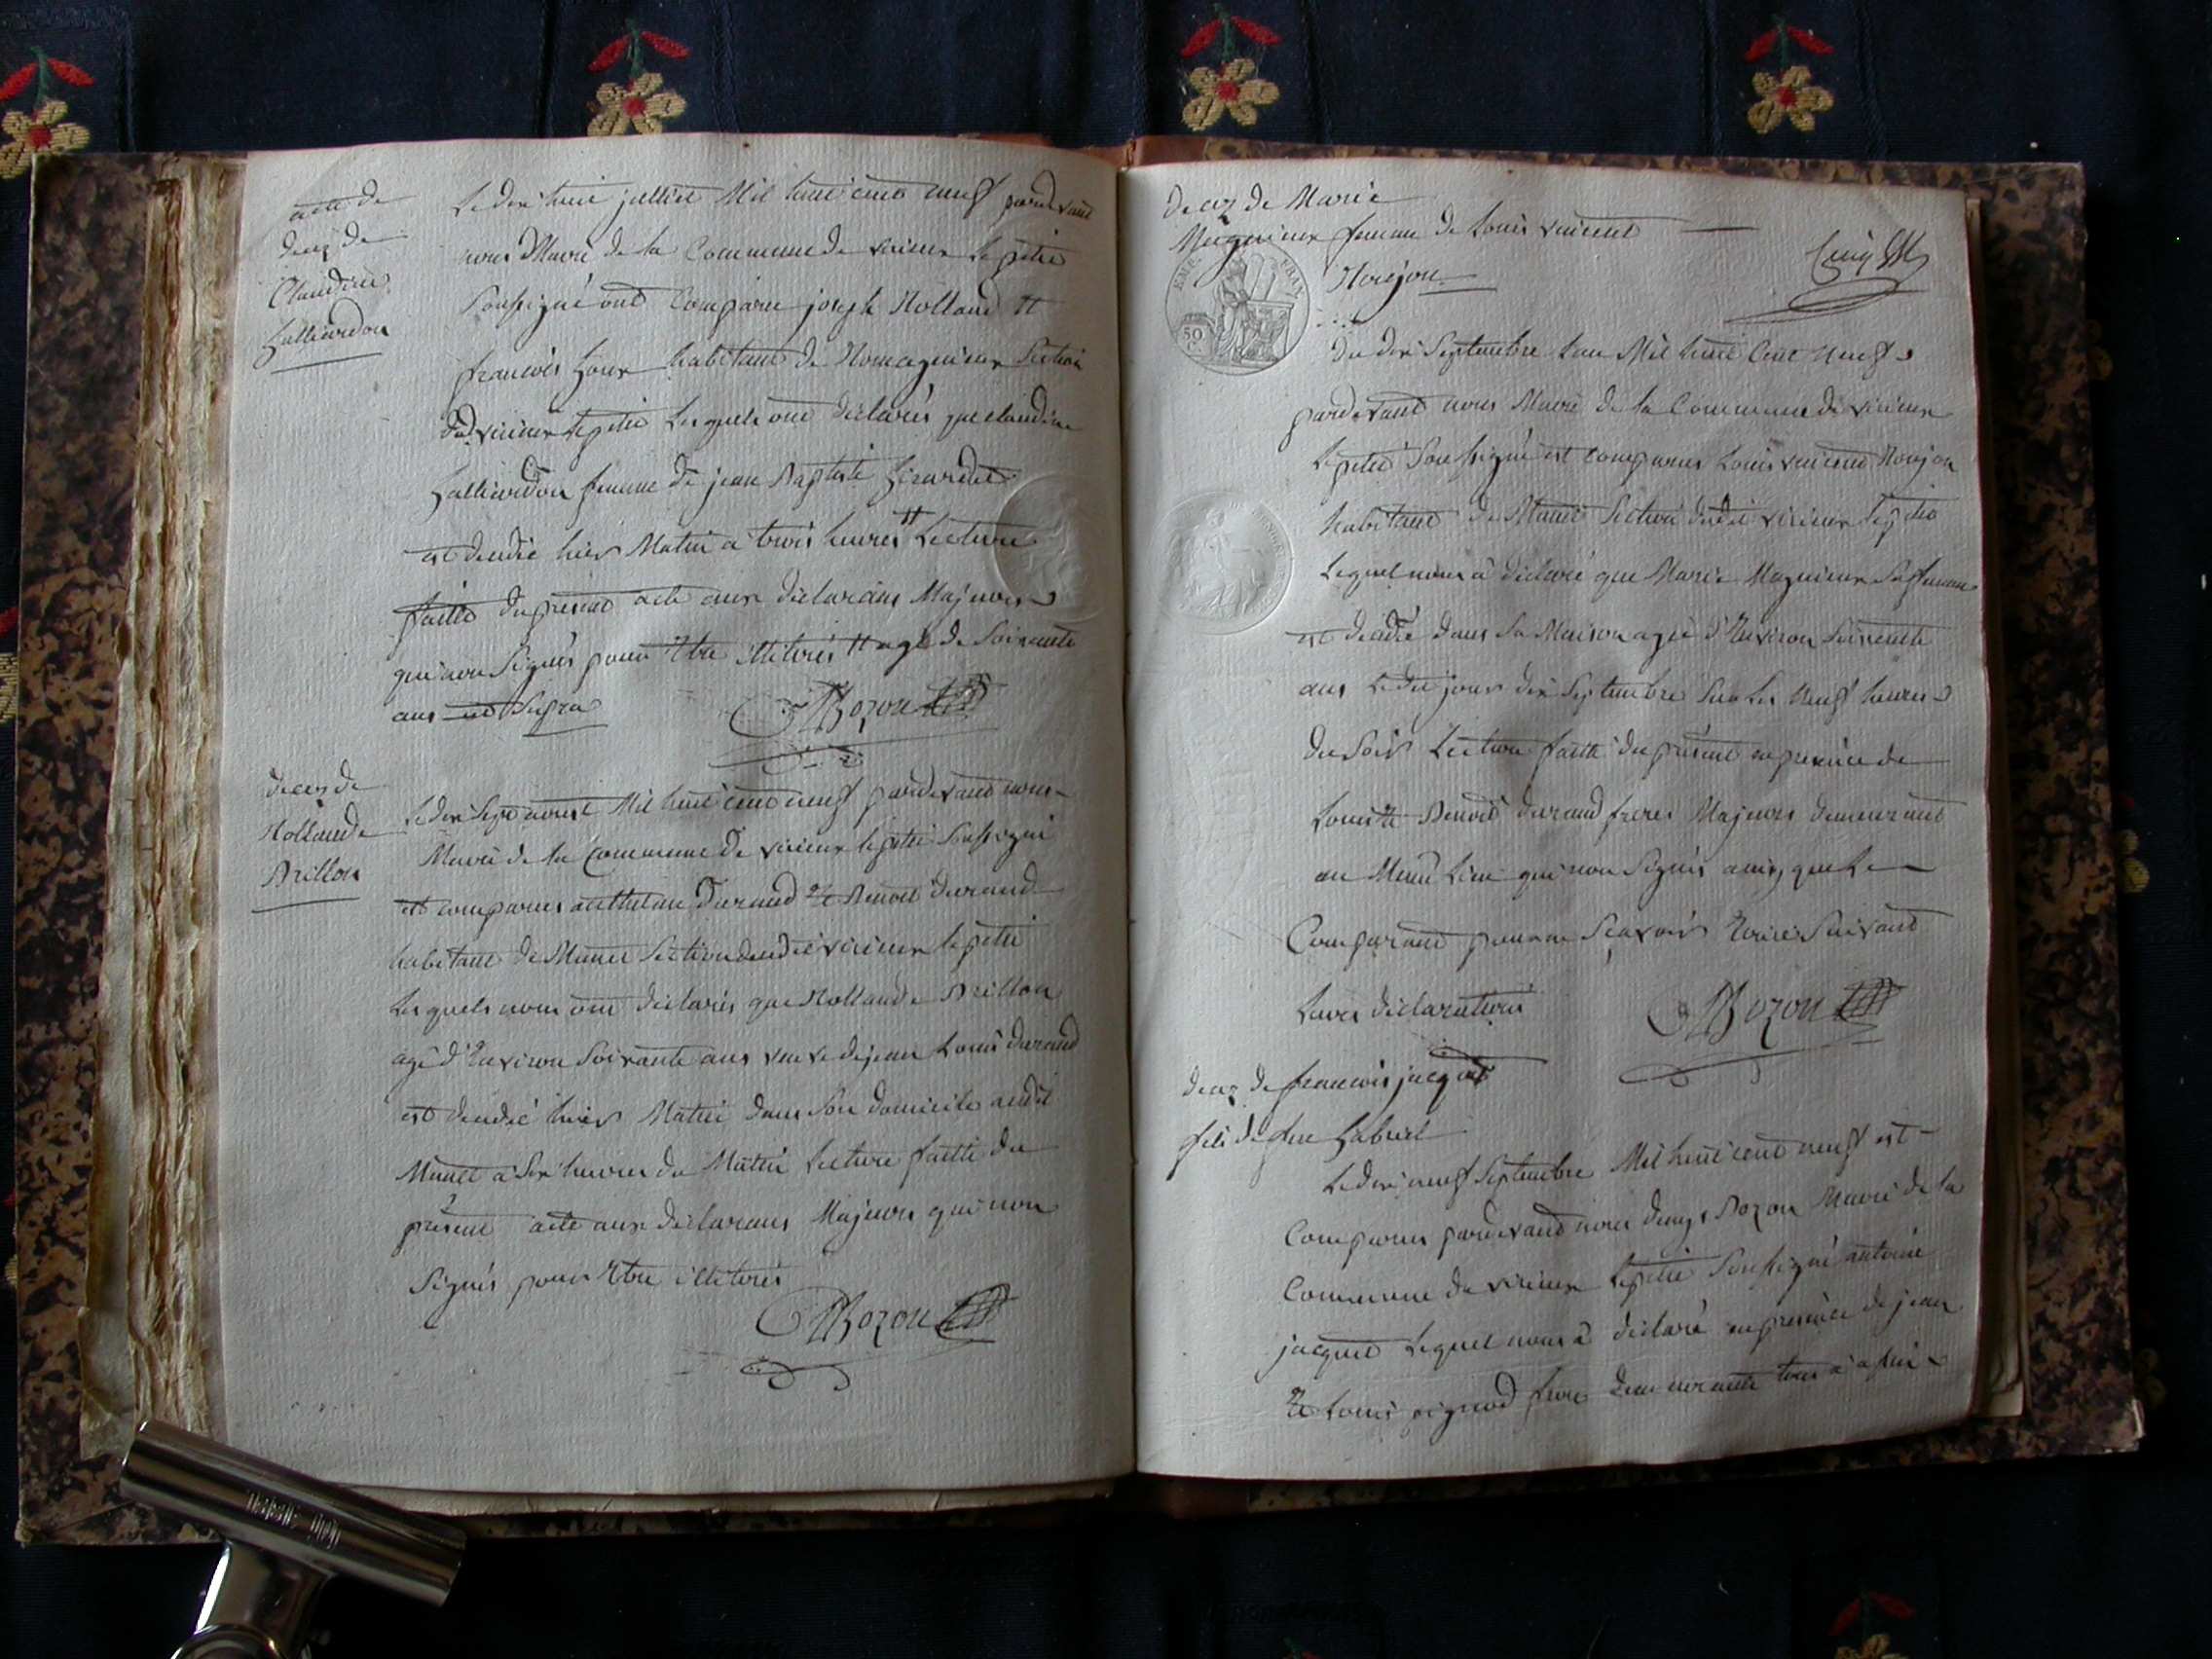 acte de
decez de
Claudine
Gallierdon
Le dix huit juilliet Mil huit cent neuf pardevant
nous Maire de la Commune de virieux le petit
Soussigné ont Comparu joseph Rolland et
francois habitant de Romagnieux Section
dud. virieux le petit Lesquels ont déclarés que claudine
Gallierdon femme de jean Baptiste Girardet
est décédé hier Matin a trois heures Lecture
faitte du présent acte aux déclarans Majeurs
qui non Signés pour Etre illiterés et agé de Soixante
ans ut Supra
Bozon
decez de
Rollande
Brillon
Le dix Sept aoust Mil huit cent neuf pardevant nous
Maire de la Commune de virieux le petit Soussigné
est comparus anthelme Durand Et Benoit durand
habitant de Munet Section dudit virieux le petit
Lesquels nous ont déclarés que Rollande Brillon
agé d'Environ Soixante ans veuve de jean Louis durand
est décédé hier Matin dans Son domicile audit
Munet a Six heures du Matin Lecture faitte du
présent acte aux déclarans Majeurs qui non
Signés pour Etre illiterés
Bozon
decez de Marie
Magnieux femme de Louis vincent
Morejon
50
du dix Septembre lan Mil huit Cent neuf
pardevant nous Maire de la Commune de virieux
le petit Soussigné est comparus Louis vincent
habitant de Munet Section dudit virieux le petit
Lequel nous à déclaré que Marie Magnieux Sa femme
est décédé dans Sa Maison agée d'Environ Soixente
ans Ledit jour dix Septembre Sur Les neuf heures
du Soir Lecture faitte du présent en presence de
Louis et Benoit durand freres Majeurs demeurant
au Même Lieu qui non Signés ainsy que Le
Comparant pour ne Sçavoir Ecrire Suivant
Leurs déclarations
Bozon
decez de francois jacquet
fils de feu Gabriel
Le dix neuf Septembre Mil huit cent neuf est
Comparus pardevant nous denys Bozon Maire de la
Commune de virieux le petit Soussigné antoine
jacquet Lequel nous à déclaré en presence de jean
Et Louis frere demeurants tous à